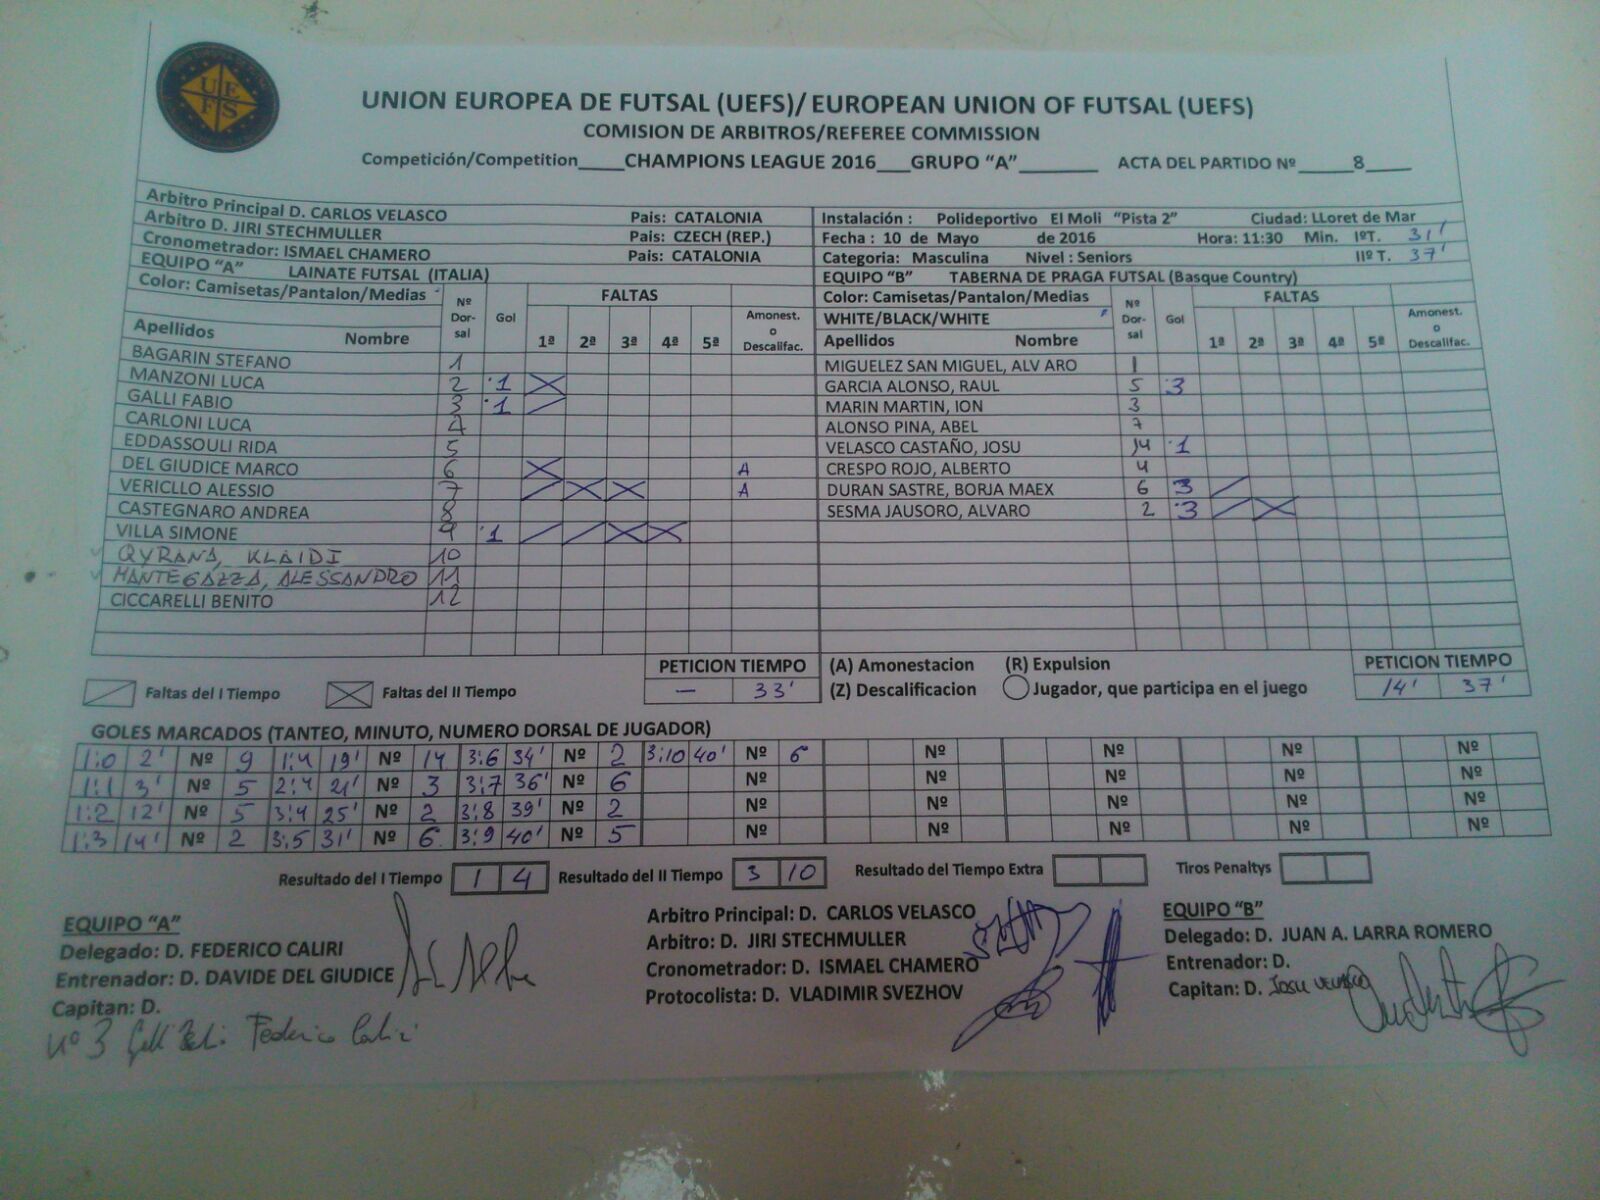 UEFS
UNION EUROPEA DE FUTSAL (UEFS)/ EUROPEAN UNION OF FUTSAL (UEFS)
COMISION DE ARBITROS/REFEREE COMMISSION
Competición/Competition____CHAMPIONS LEAGUE 2016___GRUPO “A”________ ACTA DEL PARTIDO Nº _____8____
Arbitro Principal D. CARLOS VELASCO Pais: CATALONIA
Arbitro D. JIRI STECHMULLER Pais: CZECH (REP.)
Cronometrador: ISMAEL CHAMERO Pais: CATALONIA
EQUIPO “A” LAINATE FUTSAL (ITALIA)
Color: Camisetas/Pantalon/Medias
Nº Dor-sal Gol FALTAS
Apellidos Nombre 1ª 2ª 3ª 4ª 5ª Amonest. o Descalifac.
BAGARIN STEFANO 1
MANZONI LUCA 2 1
GALLI FABIO 3 1
CARLONI LUCA 4
EDDASSOULI RIDA 5
DEL GIUDICE MARCO 6 A
VERICLLO ALESSIO 7 A
CASTEGNARO ANDREA 8
VILLA SIMONE 9 1
QYRANA, KLAIDI 10
MANTEGAZZA, ALESSANDRO 11
CICCARELLI BENITO 12
Instalación : Polideportivo El Moli “Pista 2” Ciudad: LLoret de Mar
Fecha : 10 de Mayo de 2016 Hora: 11:30 Min. IºT. 31'
Categoria: Masculina Nivel : Seniors IIº T. 37'
EQUIPO “B” TABERNA DE PRAGA FUTSAL (Basque Country)
Color: Camisetas/Pantalon/Medias
WHITE/BLACK/WHITE
Nº Dor-sal Gol FALTAS
Apellidos Nombre 1ª 2ª 3ª 4ª 5ª Amonest. o Descalifac.
MIGUELEZ SAN MIGUEL, ALV ARO 1
GARCIA ALONSO, RAUL 5 3
MARIN MARTIN, ION 3
ALONSO PINA, ABEL 7
VELASCO CASTAÑO, JOSU 14 1
CRESPO ROJO, ALBERTO 4
DURAN SASTRE, BORJA MAEX 6 3
SESMA JAUSORO, ALVARO 2 3
Faltas del I Tiempo Faltas del II Tiempo
PETICION TIEMPO
— 33'
(A) Amonestacion (R) Expulsion
(Z) Descalificacion Jugador, que participa en el juego
PETICION TIEMPO
14' 37'
GOLES MARCADOS (TANTEO, MINUTO, NUMERO DORSAL DE JUGADOR)
1:0 2' Nº 9 1:4 19' Nº 14 3:6 34' Nº 2 3:10 40' Nº 6 Nº Nº Nº Nº
1:1 3' Nº 5 2:4 21' Nº 3 3:7 36' Nº 6 Nº Nº Nº Nº Nº
1:2 12' Nº 5 3:4 25' Nº 2 3:8 39' Nº 2 Nº Nº Nº Nº Nº
1:3 14' Nº 2 3:5 31' Nº 6 3:9 40' Nº 5 Nº Nº Nº Nº Nº
Resultado del I Tiempo 1 4 Resultado del II Tiempo 3 10 Resultado del Tiempo Extra Tiros Penaltys
EQUIPO “A”
Delegado: D. FEDERICO CALIRI
Entrenador: D. DAVIDE DEL GIUDICE
Capitan: D.
Nº 3 Federico Caliri
Arbitro Principal: D. CARLOS VELASCO
Arbitro: D. JIRI STECHMULLER
Cronometrador: D. ISMAEL CHAMERO
Protocolista: D. VLADIMIR SVEZHOV
EQUIPO “B”
Delegado: D. JUAN A. LARRA ROMERO
Entrenador: D.
Capitan: D. JOSU VELASCO